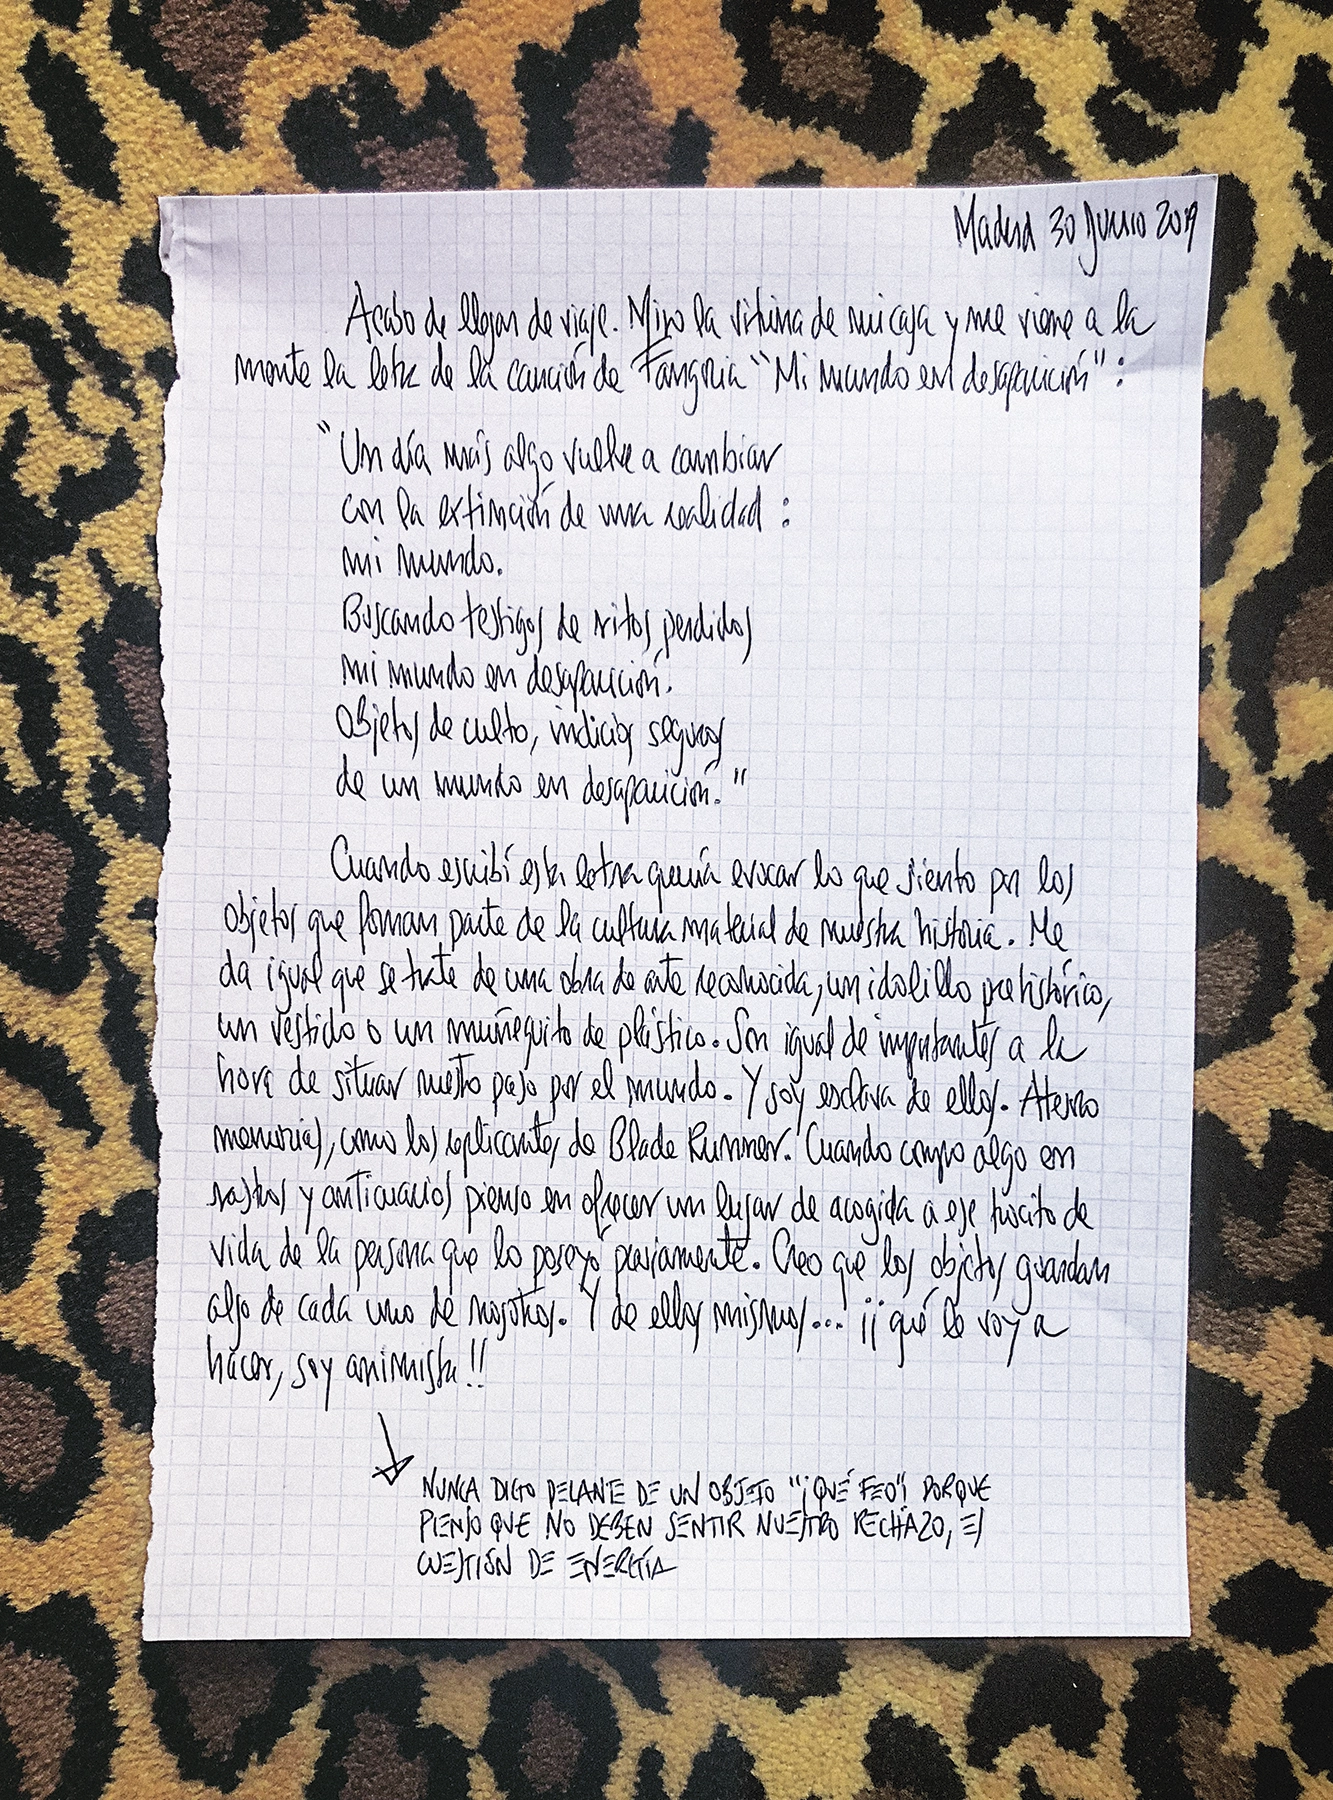 Madrid 30 Junio 2019
Acabo de llegar de viaje. Miro la vitrina de mi casa y me viene a la
mente la letra de la canción de Fangoria "Mi mundo en desaparición":
"Un día más algo vuelve a cambiar
con la extinción de una realidad:
mi mundo.
Buscando testigos de ritos perdidos
mi mundo en desaparición.
Objetos de culto, indicios seguros
de un mundo en desaparición."
Cuando escribí esta letra quería evocar lo que siento por los
objetos que forman parte de la cultura material de nuestra historia. Me
da igual que se trate de una obra de arte reconocida, un idolillo prehistórico,
un vestido o un muñequito de plástico. Son igual de importantes a la
hora de situar nuestro paso por el mundo. Y soy esclava de ellos. Atesoro
memorias, como los replicantes de Blade Runner. Cuando compro algo en
rastros y anticuarios pienso en ofrecer un lugar de acogida a ese trocito de
vida de la persona que lo poseyó previamente. Creo que los objetos guardan
algo de cada uno de nosotros. Y de ellos mismos... ¡¡qué le voy a
hacer, soy animista!!
↓
NUNCA DIGO DELANTE DE UN OBJETO "¡QUÉ FEO"! PORQUE
PIENSO QUE NO DEBEN SENTIR NUESTRO RECHAZO, ES
CUESTIÓN DE ENERGÍA